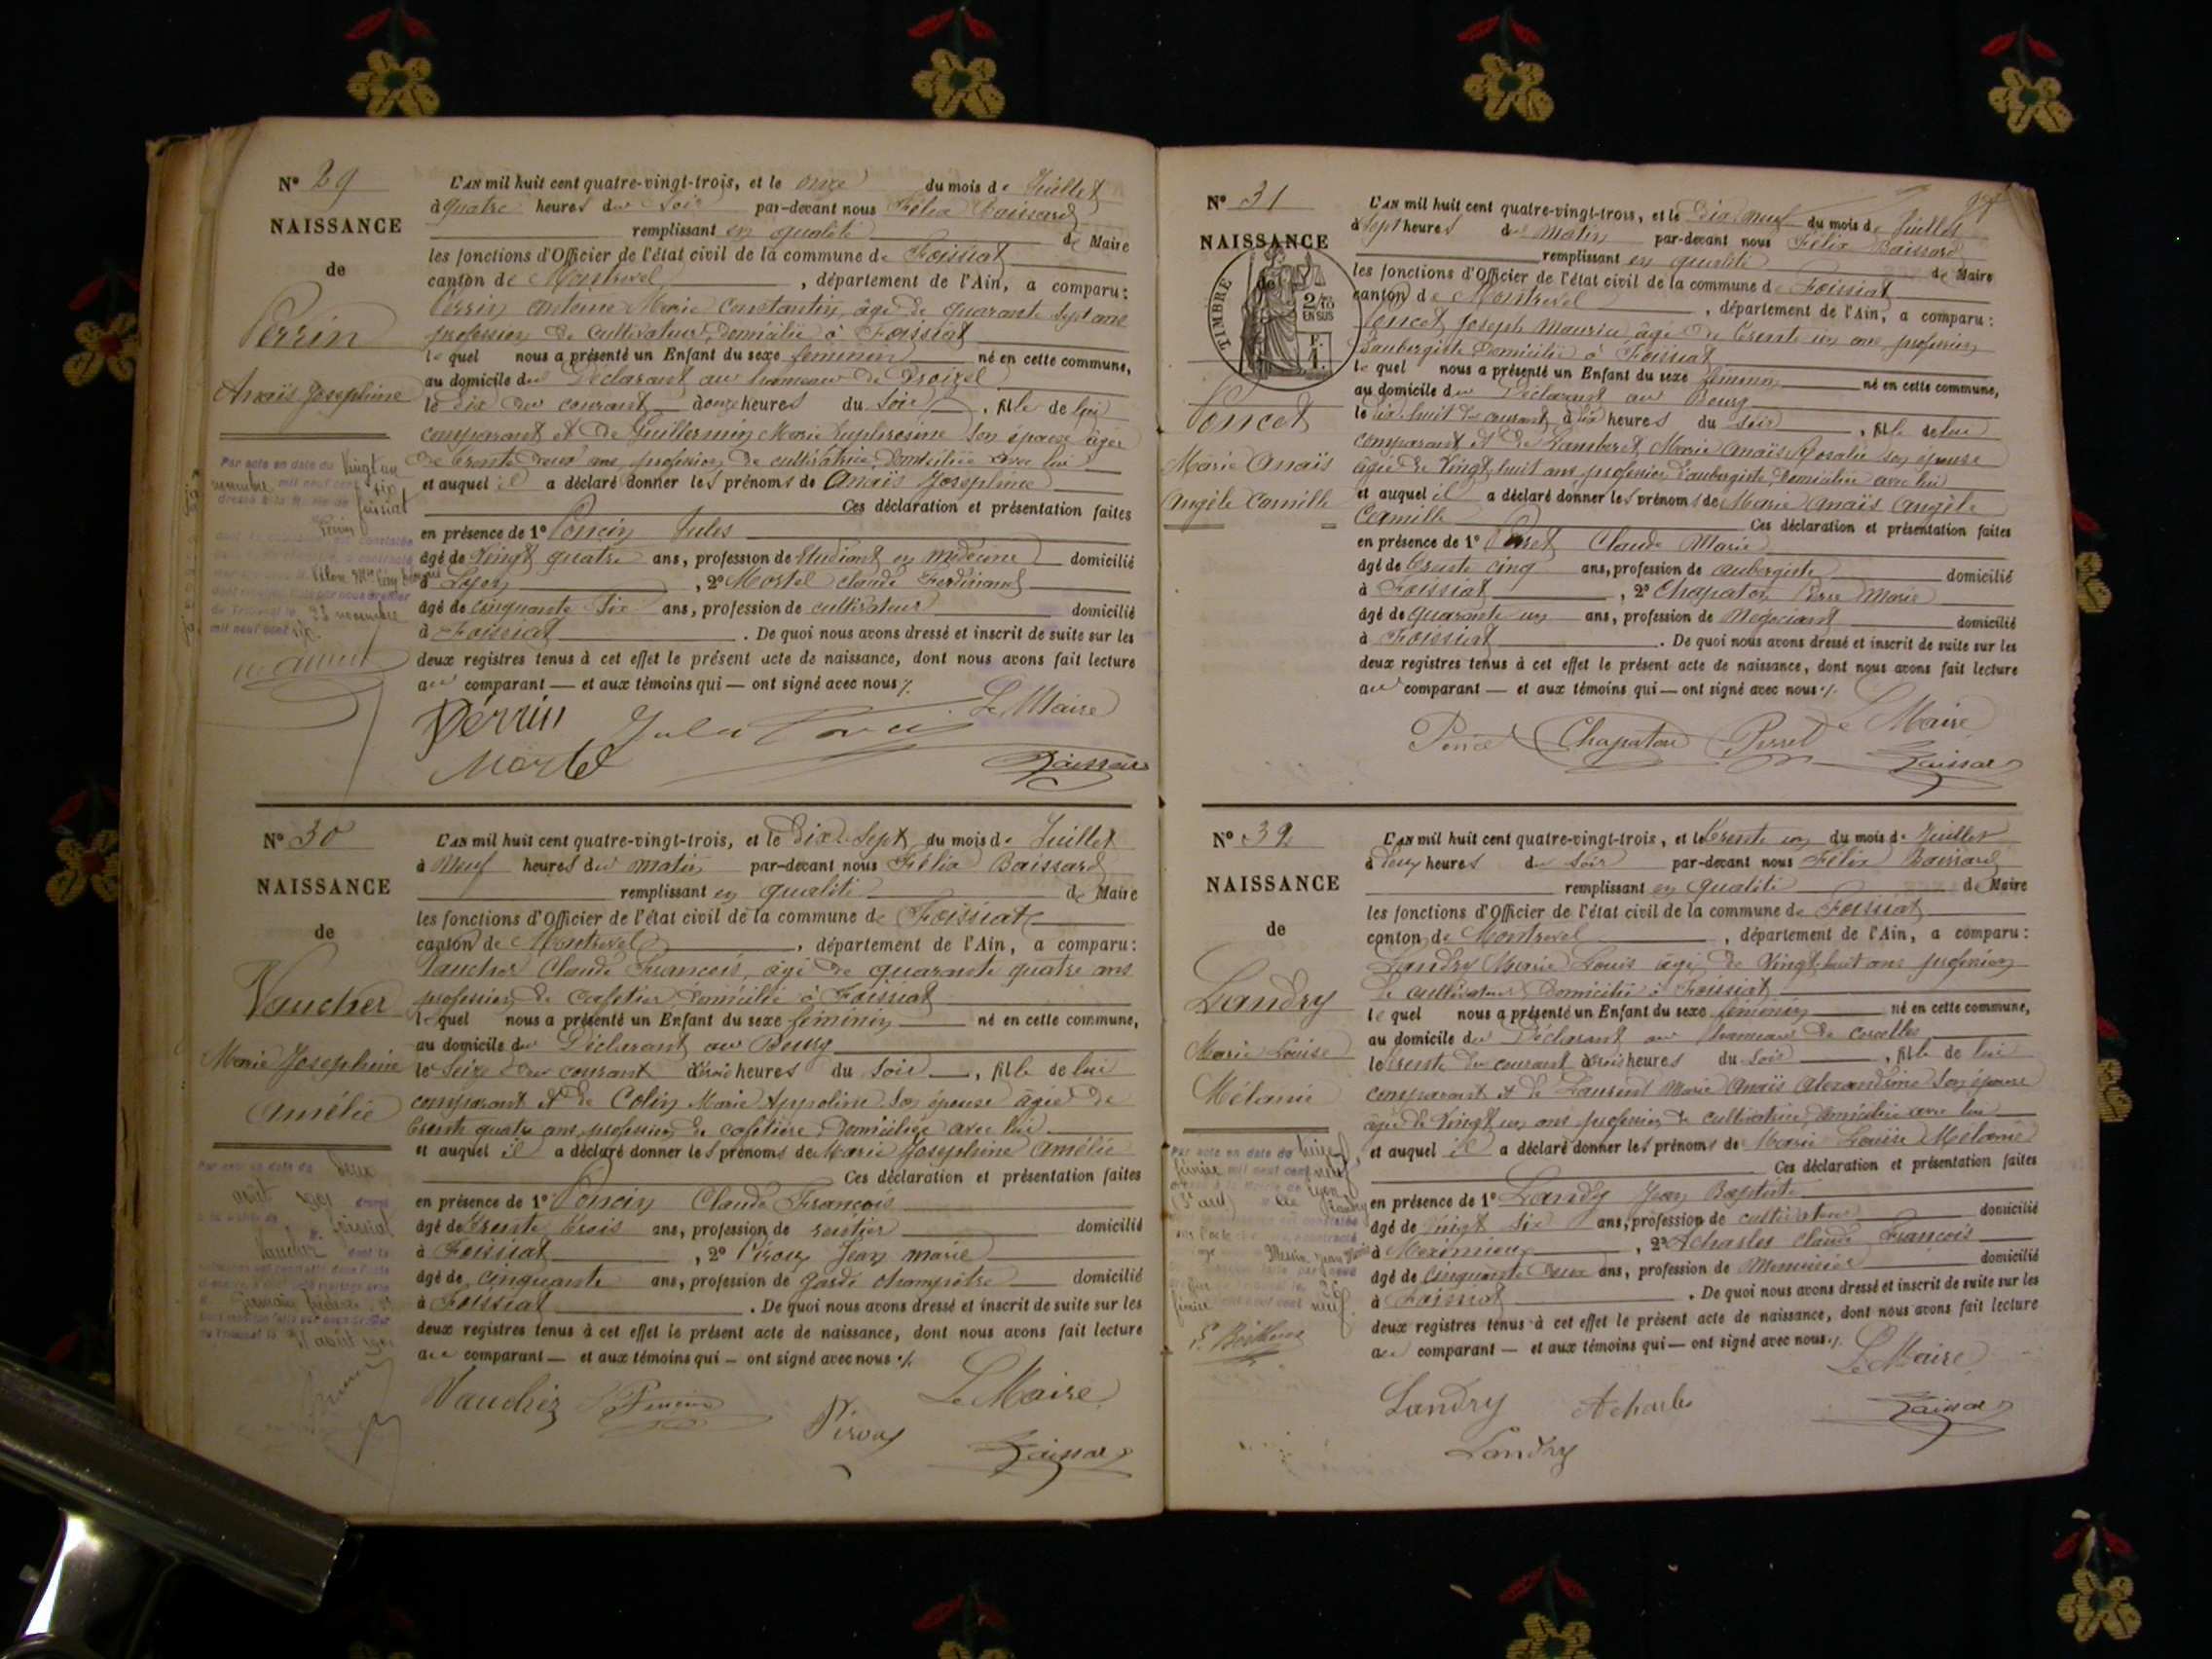 N° 29
NAISSANCE
de
Perrin
Anaïs Josephine
L'AN mil huit cent quatre-vingt-trois, et le onze du mois de Juillet
à quatre heures du Soir par-devant nous Félix Baissard
remplissant en qualité de Maire
les fonctions d'Officier de l'état civil de la commune de Foissiat
canton de Montrevel, département de l'Ain, a comparu:
Perrin antoine Marie Constantin, âgé de quarante Sept ans
profession de Cultivateur, Domicilié à Foissiat
lequel nous a présenté un Enfant du sexe feminin né en cette commune,
au domicile du Déclarant au hameau de
le dix du courant à onze heures du Soir, fille de lui
comparant et de Guillermin Marie Euphrosine Son épouse âgée
de trente deux ans, profession de cultivatrice, Domiciliée avec lui
et auquel il a déclaré donner les prénoms de Anaïs Josephine
Ces déclaration et présentation faites
en présence de 1° Poncin Jules
âgé de Vingt quatre ans, profession de Etudiant en médecine domicilié
à Lyon, 2° Mortel Claude Ferdinand
âgé de cinquante six ans, profession de cultivateur domicilié
à Foissiat. De quoi nous avons dressé et inscrit de suite sur les
deux registres tenus à cet effet le présent acte de naissance, dont nous avons fait lecture
au comparant — et aux témoins qui — ont signé avec nous ./.
Perrin Jules Poncin Le Maire
Mortel Baissard
N° 30
NAISSANCE
de
Vaucher
Marie Josephine
Amélie
L'AN mil huit cent quatre-vingt-trois, et le Dix-Sept du mois de Juillet
à Neuf heures du matin par-devant nous Félix Baissard
remplissant en qualité de Maire
les fonctions d'Officier de l'état civil de la commune de Foissiat
canton de Montrevel, département de l'Ain, a comparu:
Vaucher Claude François, âgé de quarante quatre ans
profession de cafetier domicilié à Foissiat
lequel nous a présenté un Enfant du sexe féminin né en cette commune,
au domicile du Déclarant au Bourg
le Seize du courant à trois heures du Soir, fille de lui
comparant et de Colin Marie Appoline Son épouse âgée de
trente quatre ans, profession de cafetière, Domiciliée avec lui
et auquel il a déclaré donner les prénoms de Marie Josephine Amélie
Ces déclaration et présentation faites
en présence de 1° Poncin Claude François
âgé de trente trois ans, profession de rentier domicilié
à Foissiat, 2° Piroux Jean marie
âgé de cinquante ans, profession de Garde champêtre domicilié
à Foissiat. De quoi nous avons dressé et inscrit de suite sur les
deux registres tenus à cet effet le présent acte de naissance, dont nous avons fait lecture
au comparant — et aux témoins qui — ont signé avec nous ./.
Le Maire
Baissard
N° 31
NAISSANCE
de
TIMBRE
2/10
EN SUS
Poncet
Marie Anaïs
Angèle Camille
L'AN mil huit cent quatre-vingt-trois, et le Dix neuf du mois de Juillet
à Sept heures du Matin par-devant nous Félix Baissard
remplissant en qualité de Maire
les fonctions d'Officier de l'état civil de la commune de Foissiat
canton de Montrevel, département de l'Ain, a comparu:
Poncet Joseph Maurice âgé de trente un ans, profession
d'aubergiste Domicilié à Foissiat
lequel nous a présenté un Enfant du sexe féminin né en cette commune,
au domicile du Déclarant au Bourg
le dix-huit du courant à dix heures du Soir, fille de lui
comparant et de Lamberet Marie Anaïs Rosalie son épouse
âgée de Vingt huit ans, profession d'aubergiste, Domiciliée avec lui
et auquel il a déclaré donner les prénoms de Marie Anaïs Angèle
Camille Ces déclaration et présentation faites
en présence de 1° Perret Claude Marie
âgé de trente cinq ans, profession de aubergiste domicilié
à Foissiat, 2° Chapaton Pierre Marie
âgé de quarante un ans, profession de Négociant domicilié
à Foissiat. De quoi nous avons dressé et inscrit de suite sur les
deux registres tenus à cet effet le présent acte de naissance, dont nous avons fait lecture
au comparant — et aux témoins qui — ont signé avec nous ./.
Poncet Chapaton Perret Le Maire
Baissard
N° 32
NAISSANCE
de
Landry
Marie Louise
Mélanie
L'AN mil huit cent quatre-vingt-trois, et le trente un du mois de Juillet
à deux heures du soir par-devant nous Félix Baissard
remplissant en qualité de Maire
les fonctions d'Officier de l'état civil de la commune de Foissiat
canton de Montrevel, département de l'Ain, a comparu:
Landry Marie Louis âgé de Vingt-huit ans profession
de cultivateur Domicilié à Foissiat
lequel nous a présenté un Enfant du sexe féminin né en cette commune,
au domicile du Déclarant au hameau de Cormelles
le trente du courant à trois heures du Soir, fille de lui
comparant et de Laurent Marie Anaïs Alexandrine Son épouse
âgée de Vingt un ans profession de cultivatrice, domiciliée avec lui
et auquel il a déclaré donner les prénoms de Marie Louise Mélanie
Ces déclaration et présentation faites
en présence de 1° Landry Jean Baptiste
âgé de Vingt six ans, profession de cultivateur domicilié
à Meximieux, 2° Acharles Claude François
âgé de cinquante deux ans, profession de Menuisier domicilié
à Foissiat. De quoi nous avons dressé et inscrit de suite sur les
deux registres tenus à cet effet le présent acte de naissance, dont nous avons fait lecture
au comparant — et aux témoins qui — ont signé avec nous ./.
Le Maire
Landry Acharles Baissard
Landry